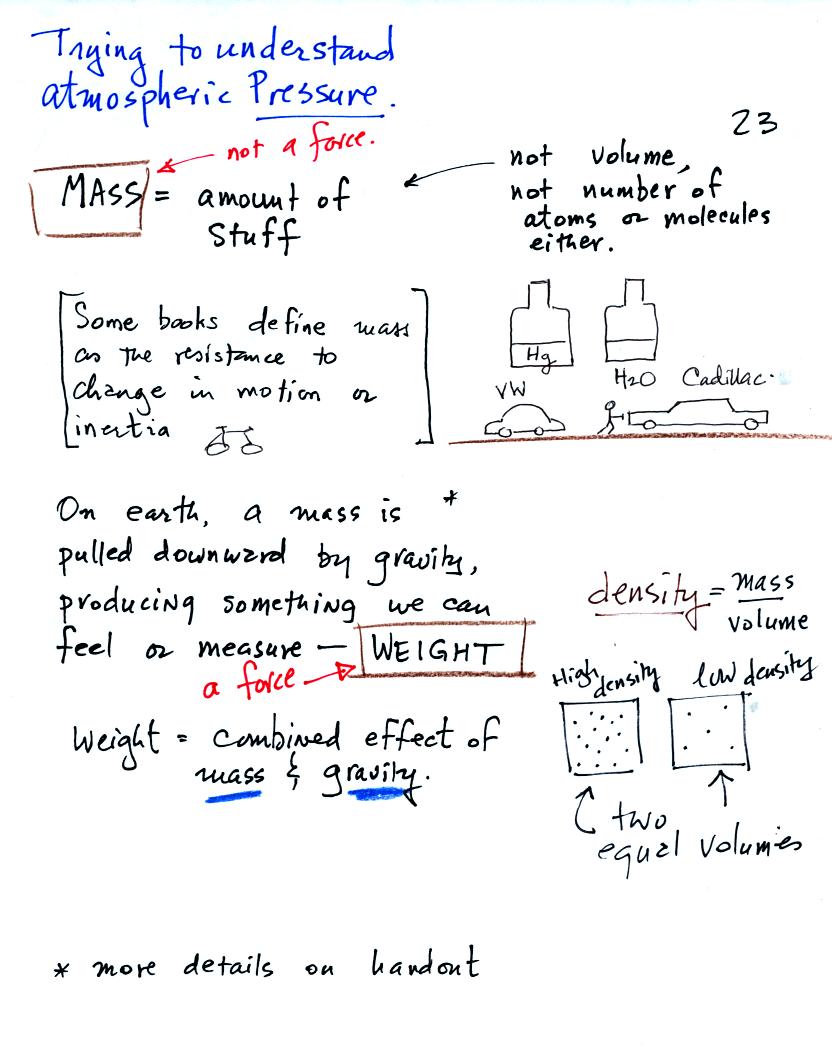 Trying to understand
atmospheric Pressure.
23
not a force.
MASS = amount of
stuff
not volume,
not number of
atoms or molecules
either.
Some books define mass
as the resistance to
change in motion or
inertia
Hg
H2O
VW
Cadillac
On earth, a mass is *
pulled downward by gravity,
producing something we can
feel or measure — WEIGHT
a force
Weight = combined effect of
mass & gravity.
density = mass
volume
High density
low density
two
equal volumes
* more details on handout